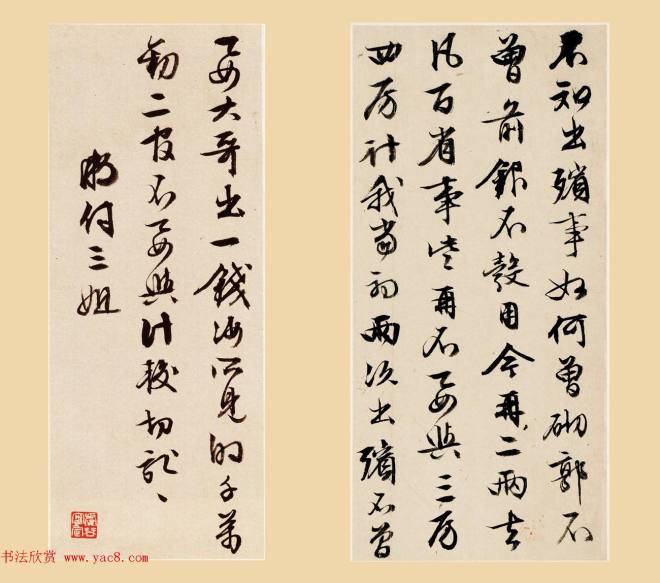 不知出殯事如何曾砌郭不
曾前銀不彀用今再二兩去
凡百省事些再不要與三房
四房計我當初兩次出殯不曾
要大哥出一錢汝所見的千萬
勸二官不要與計較切記〻
明付三姐
书法欣赏 www.yac8.com